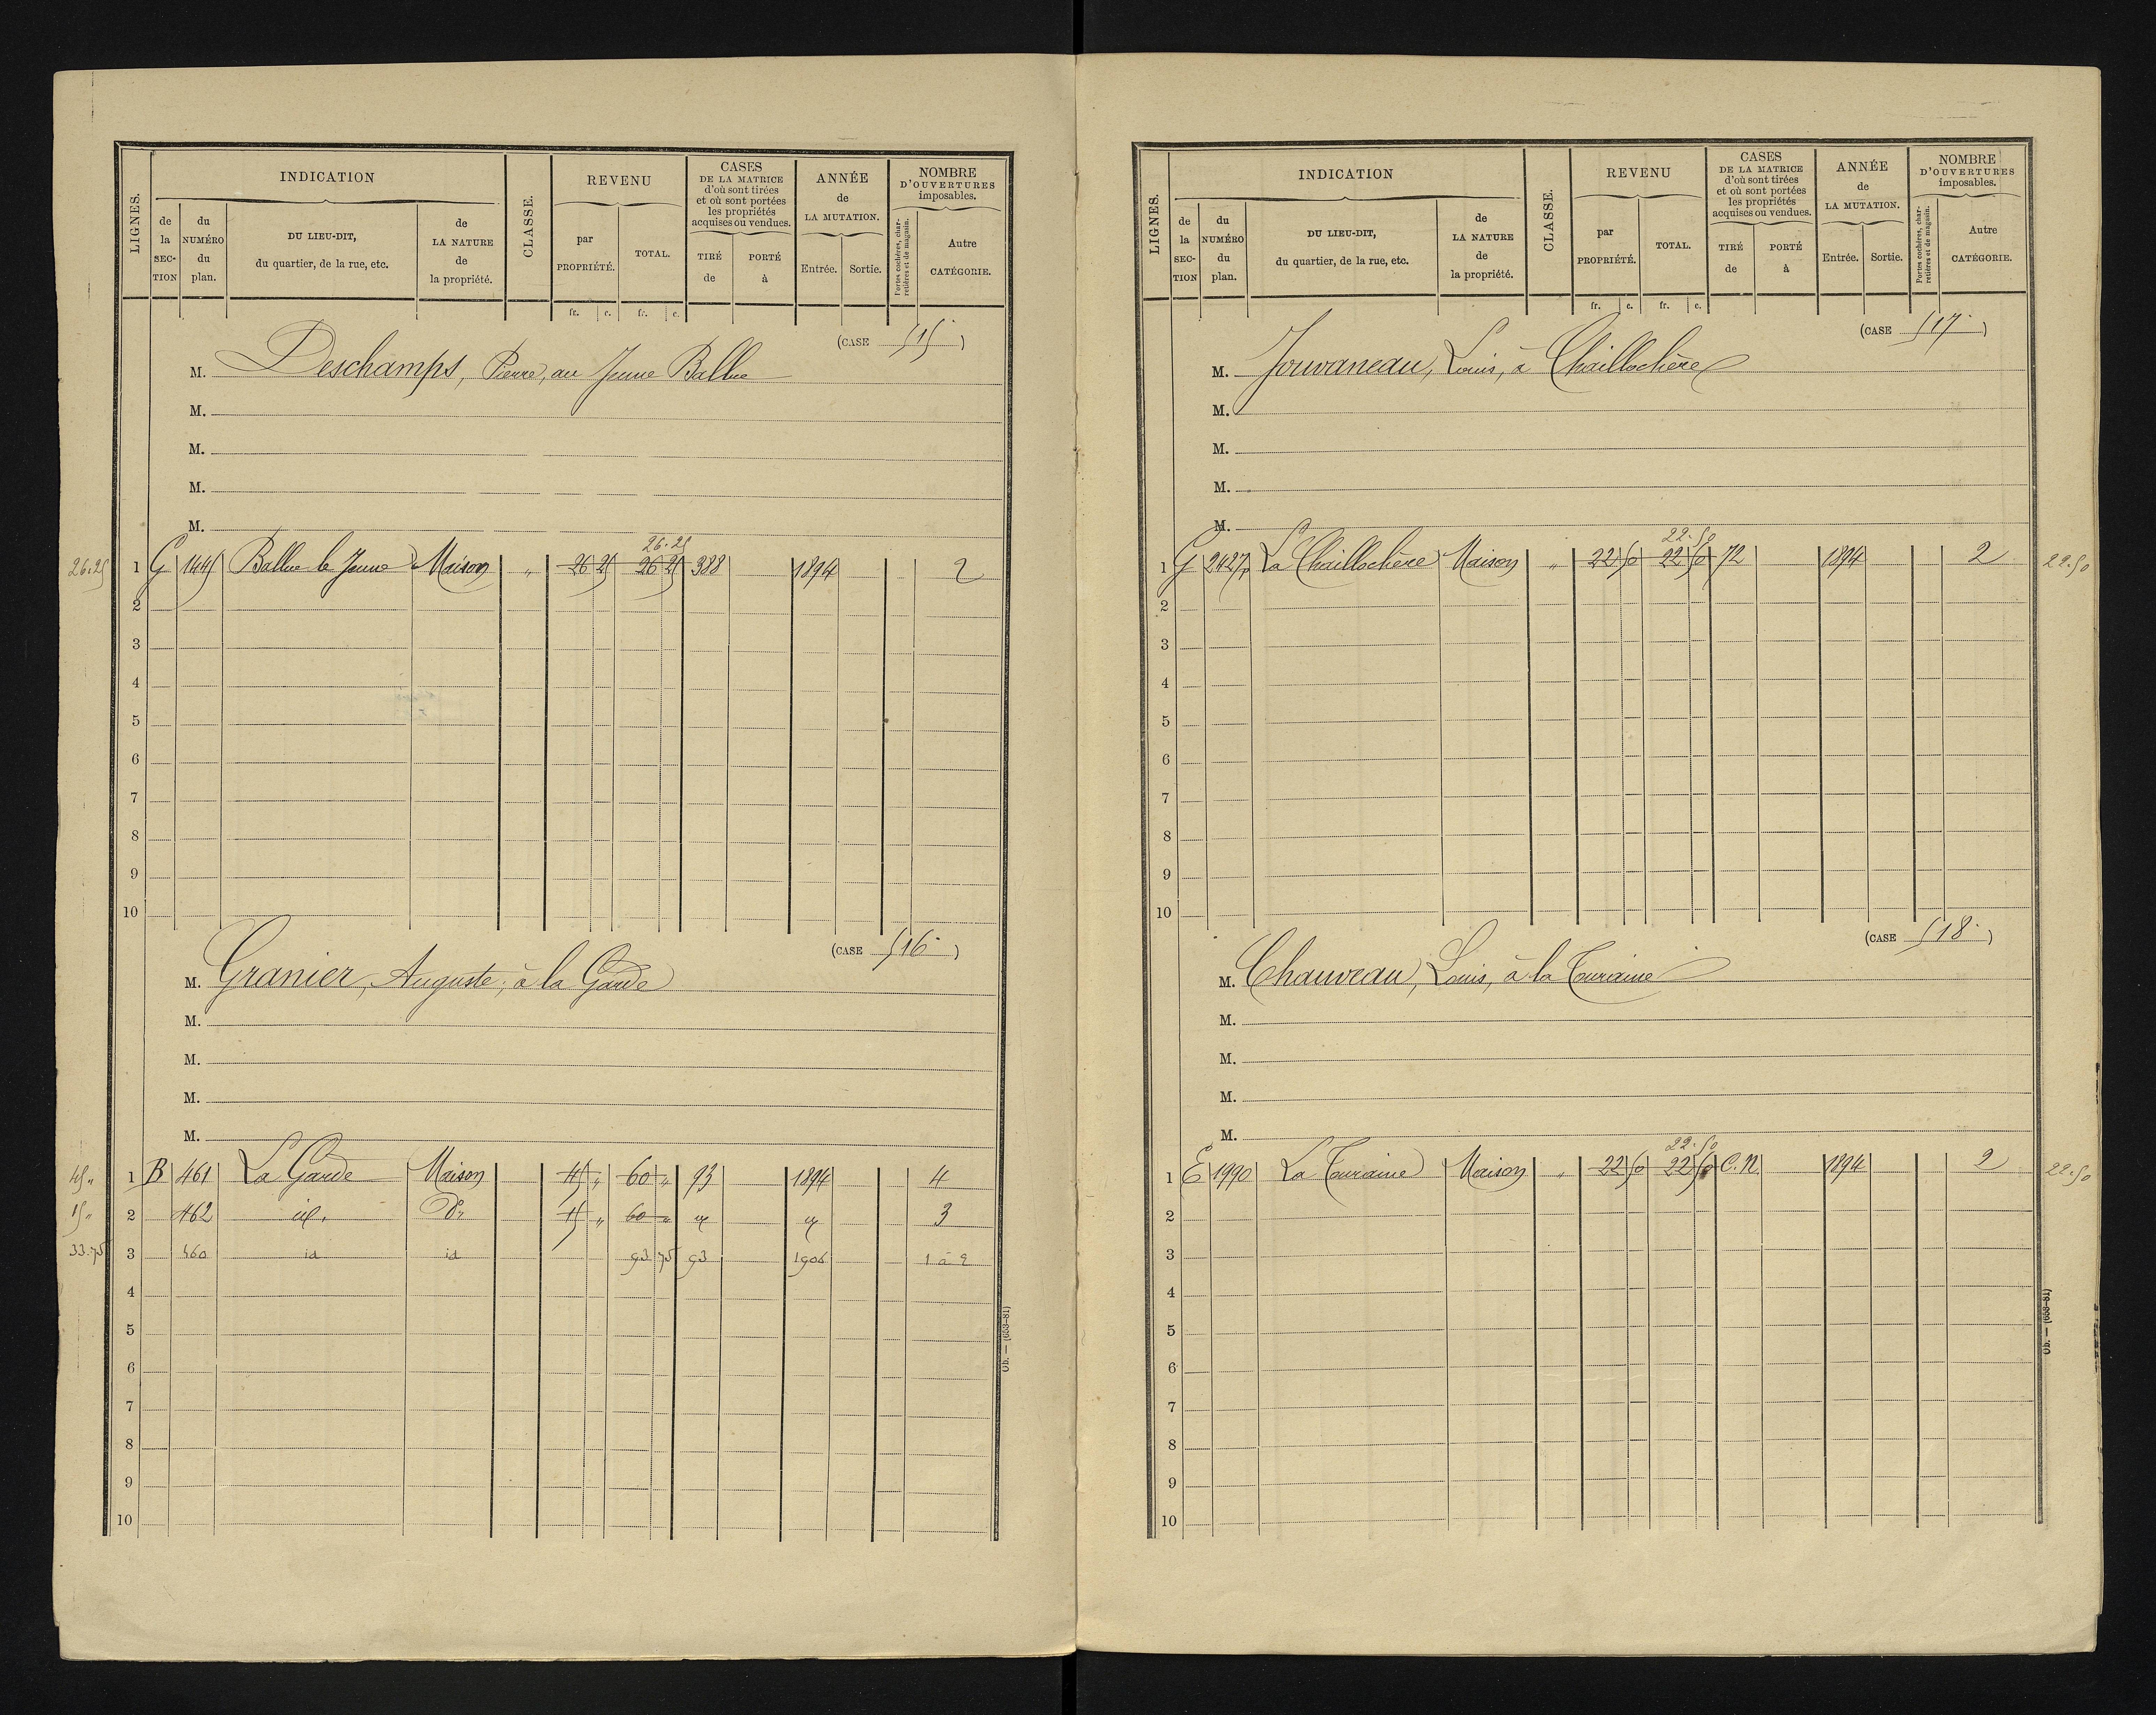 LIGNES.
INDICATION
de la SEC-TION
du NUMÉRO du plan.
DU LIEU-DIT, du quartier, de la rue, etc.
de LA NATURE de la propriété.
CLASSE.
REVENU
par PROPRIÉTÉ.
TOTAL.
CASES DE LA MATRICE d'où sont tirées et où sont portées les propriétés acquises ou vendues.
TIRÉ de
PORTÉ à
ANNÉE de LA MUTATION.
Entrée.
Sortie.
NOMBRE D'OUVERTURES imposables.
Portes cochères, charretières et de magasin.
Autre CATÉGORIE.
fr. c. fr. c.
(CASE 515 )
M. Deschamps, Pierre, au Jeune Ballue
M.
M.
M.
M.
26.25
26.25 1 G 1445 Ballue le Jeune Maison " 26 25 26 25 388 1894 2
2
3
4
5
6
7
8
9
10
(CASE 516 )
M. Granier, Auguste, à la Garde
M.
M.
M.
M.
45 " 1 B 461 La Garde Maison 45 " 60 " 93 1894 4
15 " 2 462 id. do 15 " 60 " 3
33.75 3 460 id id 93 75 93 1906 1 à 2
4
5
6
7
8
9
10
Ob. — (653-81)
LIGNES.
INDICATION
de la SEC-TION
du NUMÉRO du plan.
DU LIEU-DIT, du quartier, de la rue, etc.
de LA NATURE de la propriété.
CLASSE.
REVENU
par PROPRIÉTÉ.
TOTAL.
CASES DE LA MATRICE d'où sont tirées et où sont portées les propriétés acquises ou vendues.
TIRÉ de
PORTÉ à
ANNÉE de LA MUTATION.
Entrée.
Sortie.
NOMBRE D'OUVERTURES imposables.
Portes cochères, charretières et de magasin.
Autre CATÉGORIE.
fr. c. fr. c.
(CASE 517 )
M. Jouvaneau, Louis, à Chaillochère
M.
M.
M.
M.
22.50
1 G 2427p La Chaillochère Maison " 22 50 22 50 72 1894 2 22.50
2
3
4
5
6
7
8
9
10
(CASE 518 )
M. Chauveau, Louis, à la Touraine
M.
M.
M.
M.
22.50
1 E 1990 La Touraine Maison " 22 50 22 50 C.N. 1894 2 22.50
2
3
4
5
6
7
8
9
10
Ob. — (653-81)